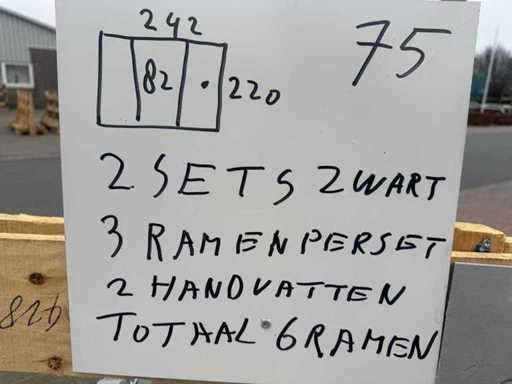 242
75
82
220
2 SETS ZWART
3 RAMEN PER SET
2 HANDVATTEN
TOTAAL 6 RAMEN